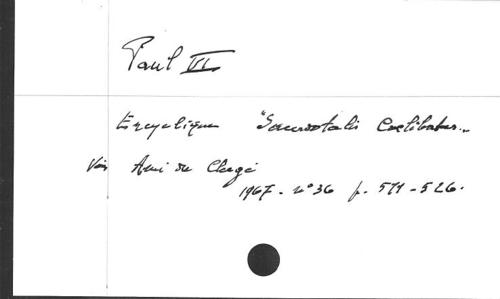 Paul VI
Encyclique "Sacerdotalis Caelibatus"..
Voir Ami du Clergé
1967 - n° 36 p. 511-526.